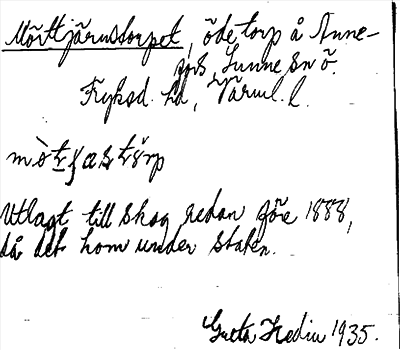 Mörttjärnstorpet, ödetorp å Anne-
fors, Sunne sn ö.
Fryksd. hd, Värml. l.
Utlagt till skog redan före 1888,
då det kom under staten.
Greta Hedin 1935.